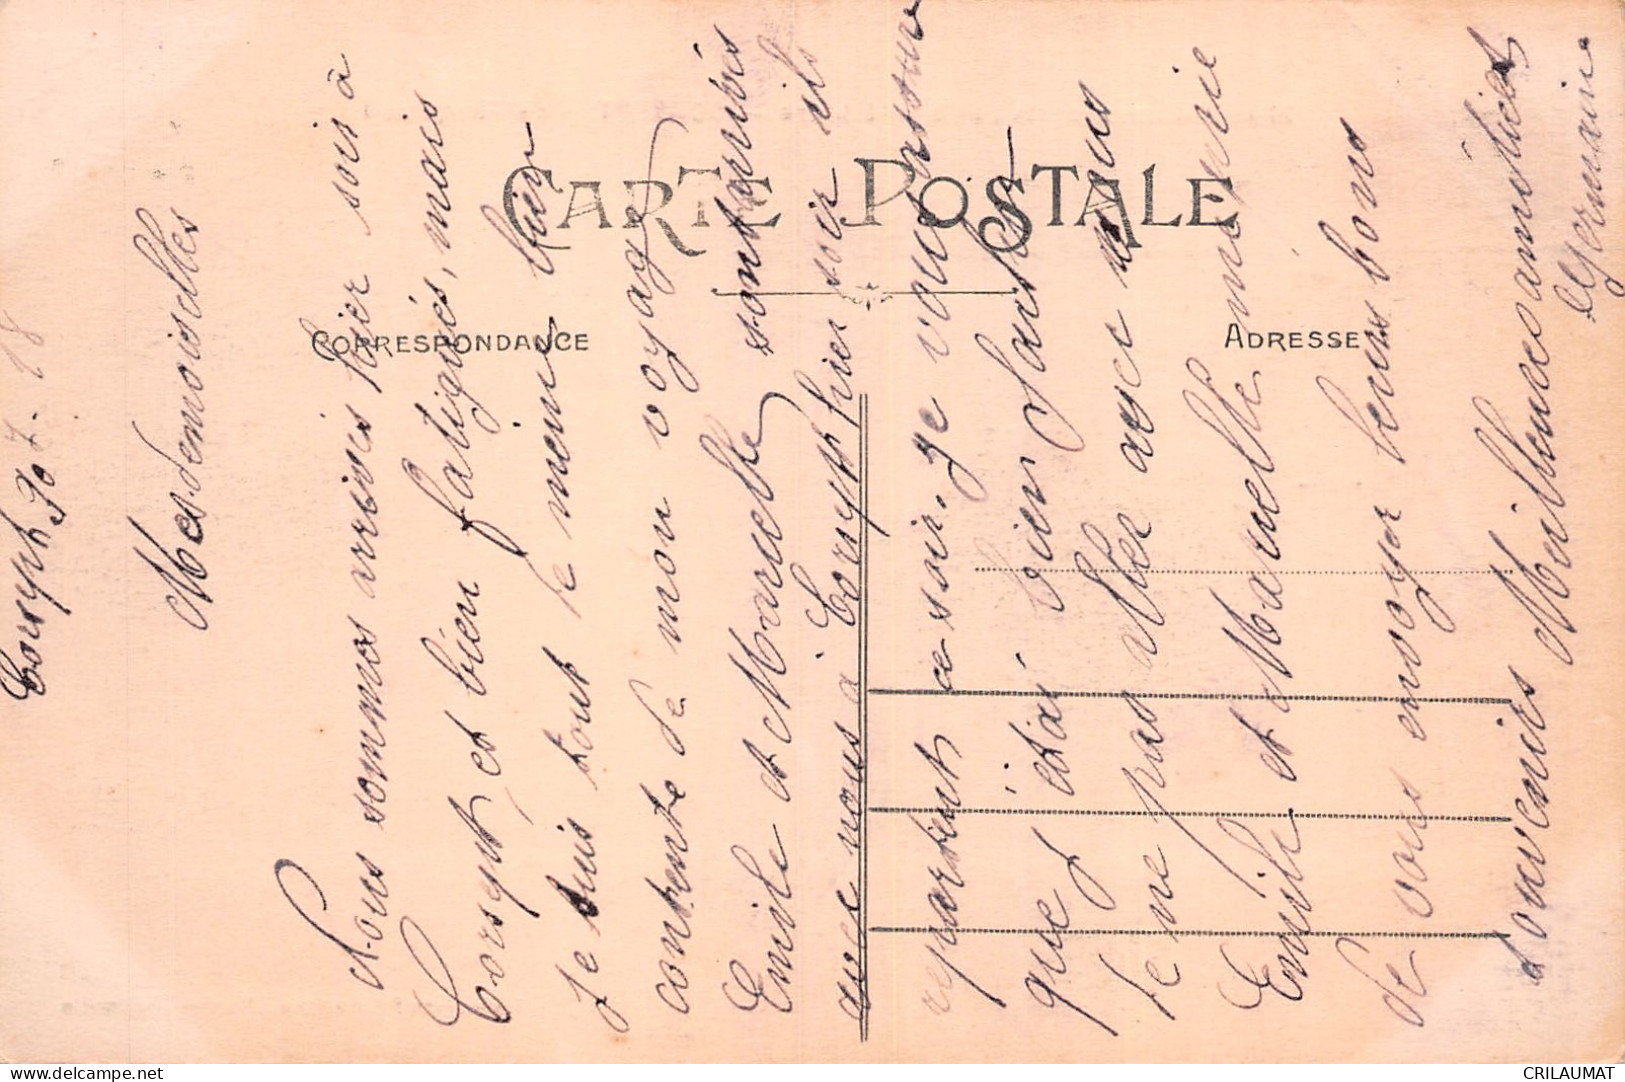 Corsept 30 7. 18
Mesdemoiselles
Nous sommes arrivés hier soir à
Corsept et bien fatigués, mais
Je suis tout de même bien
contente de mon voyage
Emile et Marcelle sont arrivés
avec nous à Corsept hier soir ils
repartent ce soir. Je vous assure
que j'étai bien
de ne pas aller avec nous
Emile et Marcelle
de vous envoyer leurs bons
souvenirs Meilleures amitiées
Germaine
CARTE POSTALE
CORRESPONDANCE
ADRESSE
delcampe.net
CRILAUMAT